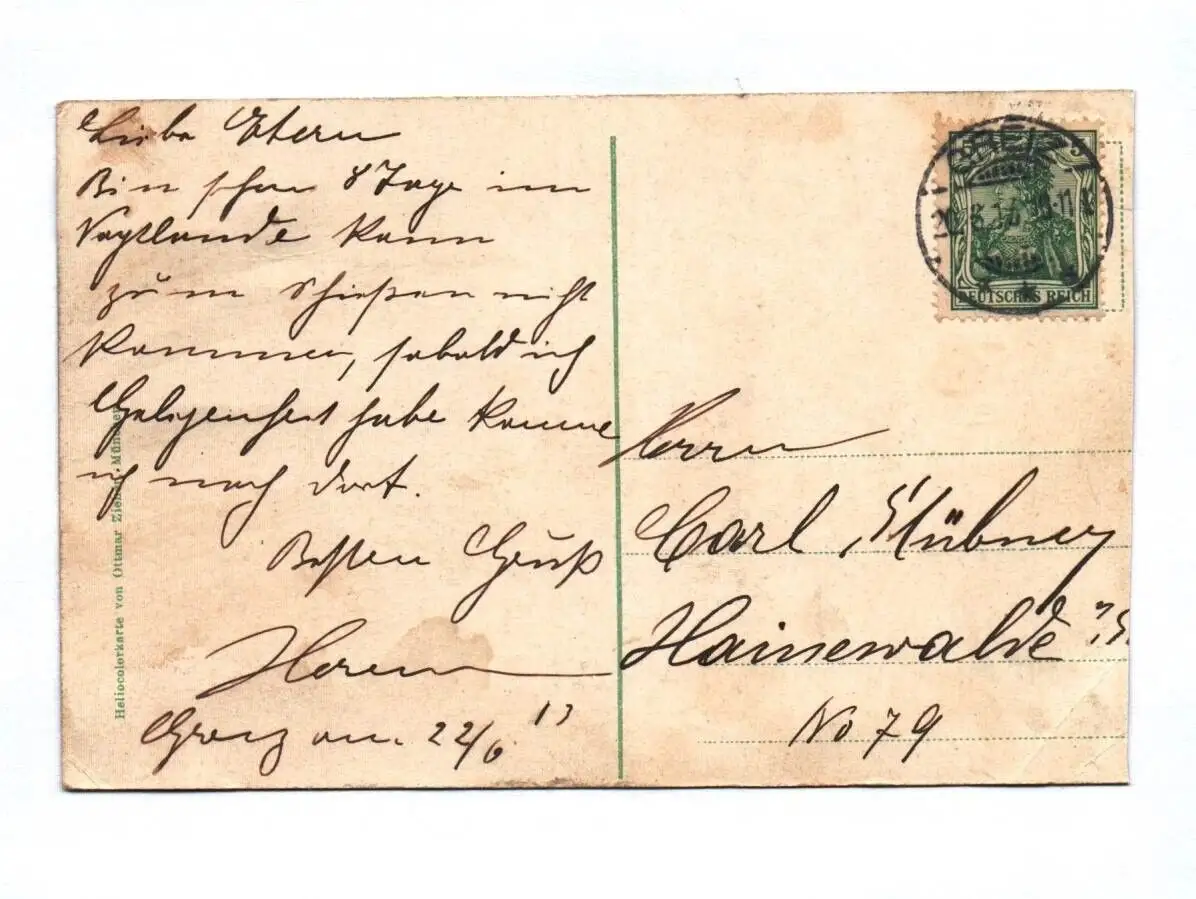 Liebe Eltern
Bin schon 8 Tage im
Vogtlande kann
zum Schießen nicht
kommen, sobald ich
Gelegenheit habe komme
ich nach dort.
Besten Gruß
Greiz am 22/6 13
Heliocolorkarte von Ottmar Zieher, München
GREIZ
DEUTSCHES REICH
Herrn
Carl
Hainewalde i/S.
No 79